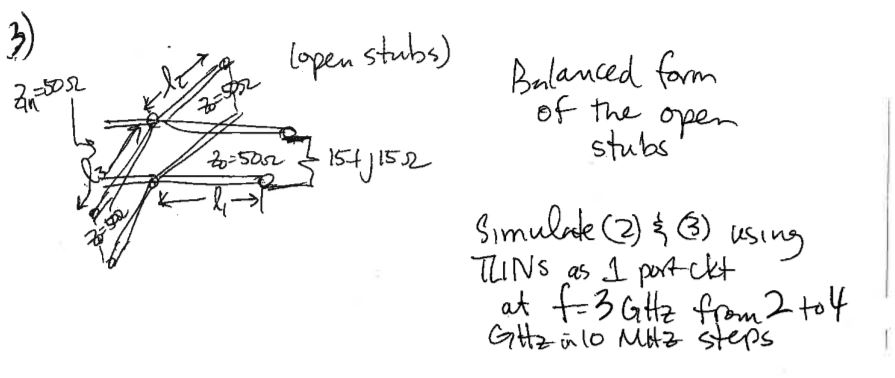 3)
(open stubs)
Zin=50Ω
l2
Z0=50Ω
l3
Z0=50Ω
15+j15Ω
Z0=50Ω
l1
Balanced form
of the open
stubs
Simulate (2) & (3) using
TLINs as 1 port ckt
at f=3 GHz from 2 to 4
GHz in 10 MHz steps